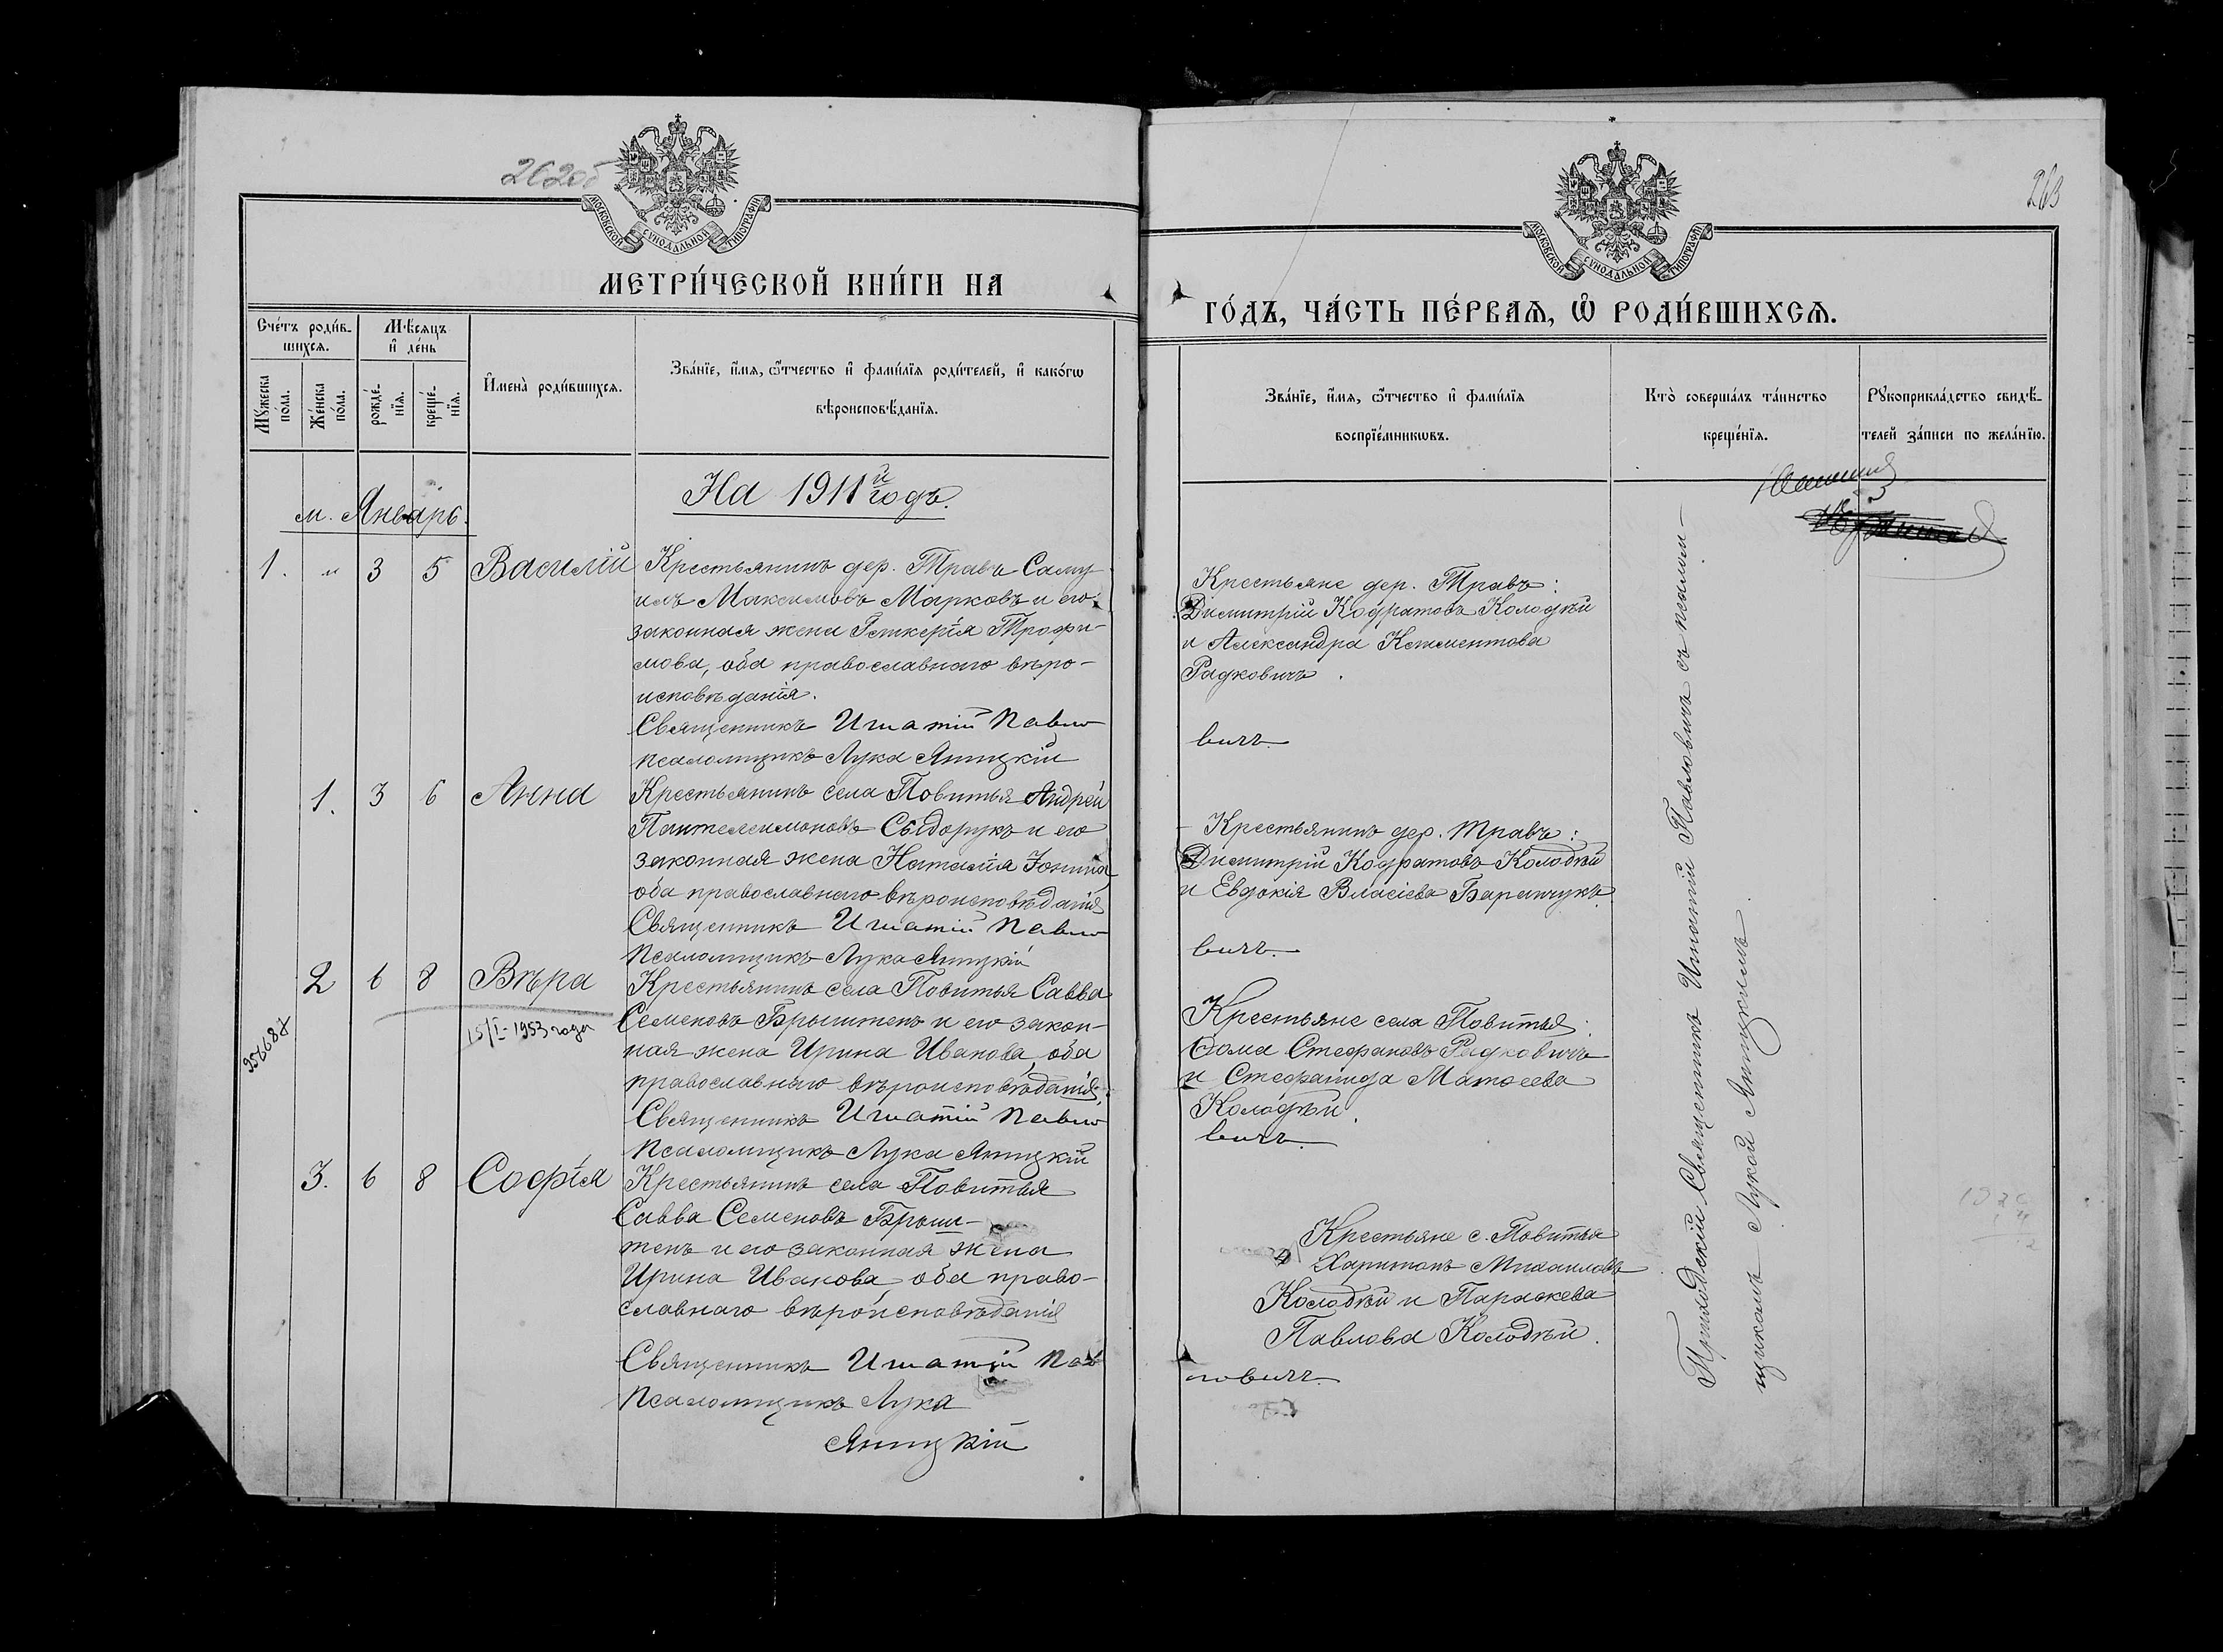 262об
МОСКОВСКОЙ СУНОДАЛЬНОЙ ТИПОГРАФІИ
МЕТРИ́ЧЕСКОЙ КНИ́ГИ НА
Сче́тъ роди́в-
шихсѧ.
Мѣсѧцъ
и҆ де́нь
Мꙋ́жеска
по́ла.
Же́нска
по́ла.
рожде́-
нїѧ.
креще́-
нїѧ.
И҆мена̀ роди́вшихсѧ.
Зва́нїе, и҆́мѧ, ѻ҆́тчество и҆ фами́лїѧ роди́телей, и҆ како́гѡ
вѣроисповѣ́данїѧ.
м. Январь.
На 1911й годъ.
1. " 3 5 Василій
Крестьянинъ дер. Травъ Саму-
илъ Максимовъ Марковъ и его
законная жена Гликерія Трофи-
мова, оба православнаго вѣро-
исповѣданія.
Священникъ Игнатій Павло
псаломщикъ Лука Яницкій
1. 3 6 Анна
Крестьянинъ села Повитья Андрей
Пантелеимоновъ Сыдорукъ и его
законная жена Наталія Іонина
оба православнаго вѣроисповѣданія
Священникъ Игнатій Павло
Псаломщикъ Лука Яницкій
2 6 8 Вѣра
15/I-1953 года
Крестьянинъ села Повитья Савва
Семеновъ Брыштенъ и его закон-
ная жена Ирина Иванова, оба
православнаго вѣроисповѣданія.
Священникъ Игнатій Павло
Псаломщикъ Лука Яницкій
3. 6 8 Софія
Крестьянинъ села Повитья
Савва Семеновъ Брыш-
тенъ и его законная жена
Ирина Иванова, оба право-
славнаго вѣроисповѣданія
Священникъ Игнатій Пав
Псаломщикъ Лука
Яницкій
263
МОСКОВСКОЙ СУНОДАЛЬНОЙ ТИПОГРАФІИ
ГО́ДЪ, ЧА́СТЬ ПЕ́РВАѦ, Ѡ҆ РОДИ́ВШИХСѦ.
Зва́нїе, и҆́мѧ, ѻ҆́тчество и҆ фами́лїѧ
воспрїе́мникѡвъ.
Кто̀ соверша́лъ та́инство
креще́нїѧ.
Рꙋкоприкла́дство свидѣ́-
телей за́писи по жела́нїю.
Крестьяне дер. Травъ:
Димитрій Кодратовъ Колодѣй
и Александра Климентова
Радковичъ.
вичъ.
Крестьянинъ дер. Травъ:
Димитрій Кодратовъ Колодѣй
и Евдокія Власіева Баранчукъ.
вичъ.
Крестьяне села Повитья:
Ѳома Стефановъ Радковичъ
и Стефанида Матѳеева
Колодѣй.
вичъ.
Крестьяне с. Повитья
Харитонъ Михаиловъ
Колодѣй и Параскева
Павлова Колодѣй.
ловичъ.
Приходскій Священникъ Игнатій Павловичъ съ псалом-
щикомъ Лукой Яницкимъ.